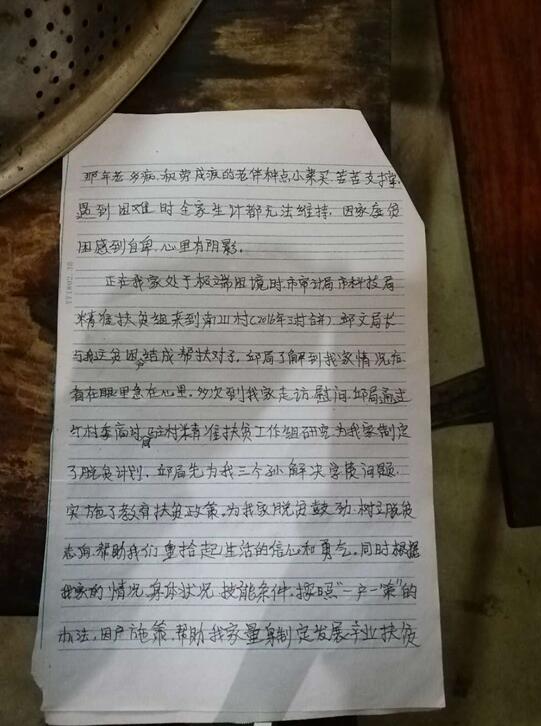 那年老多病、积劳成疾的老伴种点小菜买、苦苦支撑,
遇到困难时全家生计都无法维持,因家庭贫
困感到自卑、心里有阴影。
正在我家处于极端困境时,市审计局市科技局
精准扶贫组来到南山村(2016年3村合并)、邱文局长
与我这贫困户结成帮扶对子。邱局了解到我家情况后
看在眼里急在心里。多次到我家走访慰问,邱局通过
与村委商讨、同驻村精准扶贫工作组研究、为我家制定
了脱贫计划。邱局先为我三个孙解决学费问题。
实施了教育扶贫政策。为我家脱贫鼓劲、树立脱贫
志向、帮助我们重拾起生活的信心和勇气。同时根据
我家的情况、身体状况、技能条件。按照"一户一策"的
办法,因户施策、帮助我家量身制定发展产业扶贫
YYIW02.10